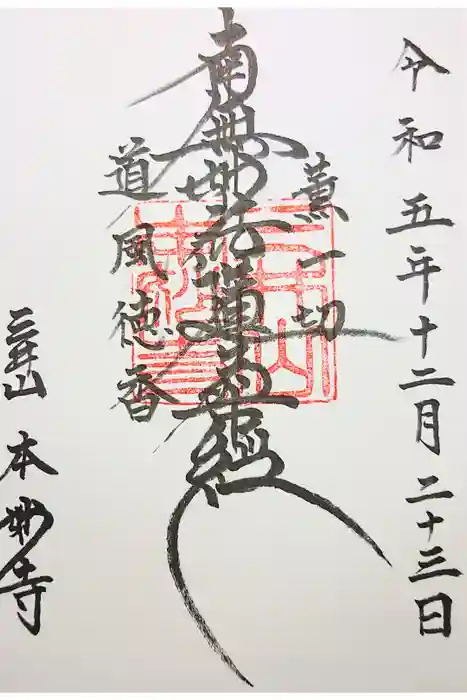 令和五年十二月二十三日
薫一切
南無妙法蓮華經
道風徳香
三井山 本妙寺